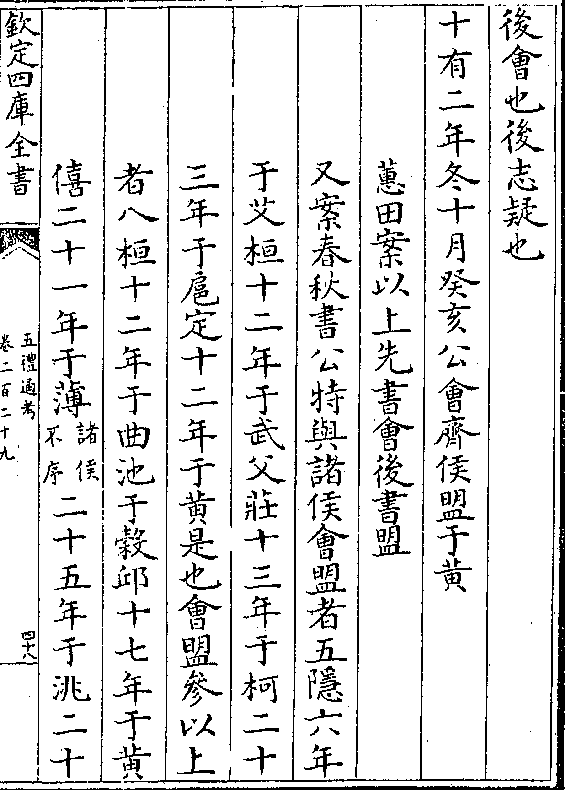 後會也後志疑也
十有二年冬十月癸亥公會齊侯盟于黄
蕙田案以上先書會後書盟
又案春秋書公特與諸侯會盟者五隱六年
于艾桓十二年于武父莊十三年于柯二十
三年于扈定十二年于黄是也會盟參以上
者八桓十二年于曲池于穀邱十七年于黄
僖二十一年于薄諸侯不序二十五年于洮二十
欽定四庫全書
五禮通考
卷二百二十九
四十八